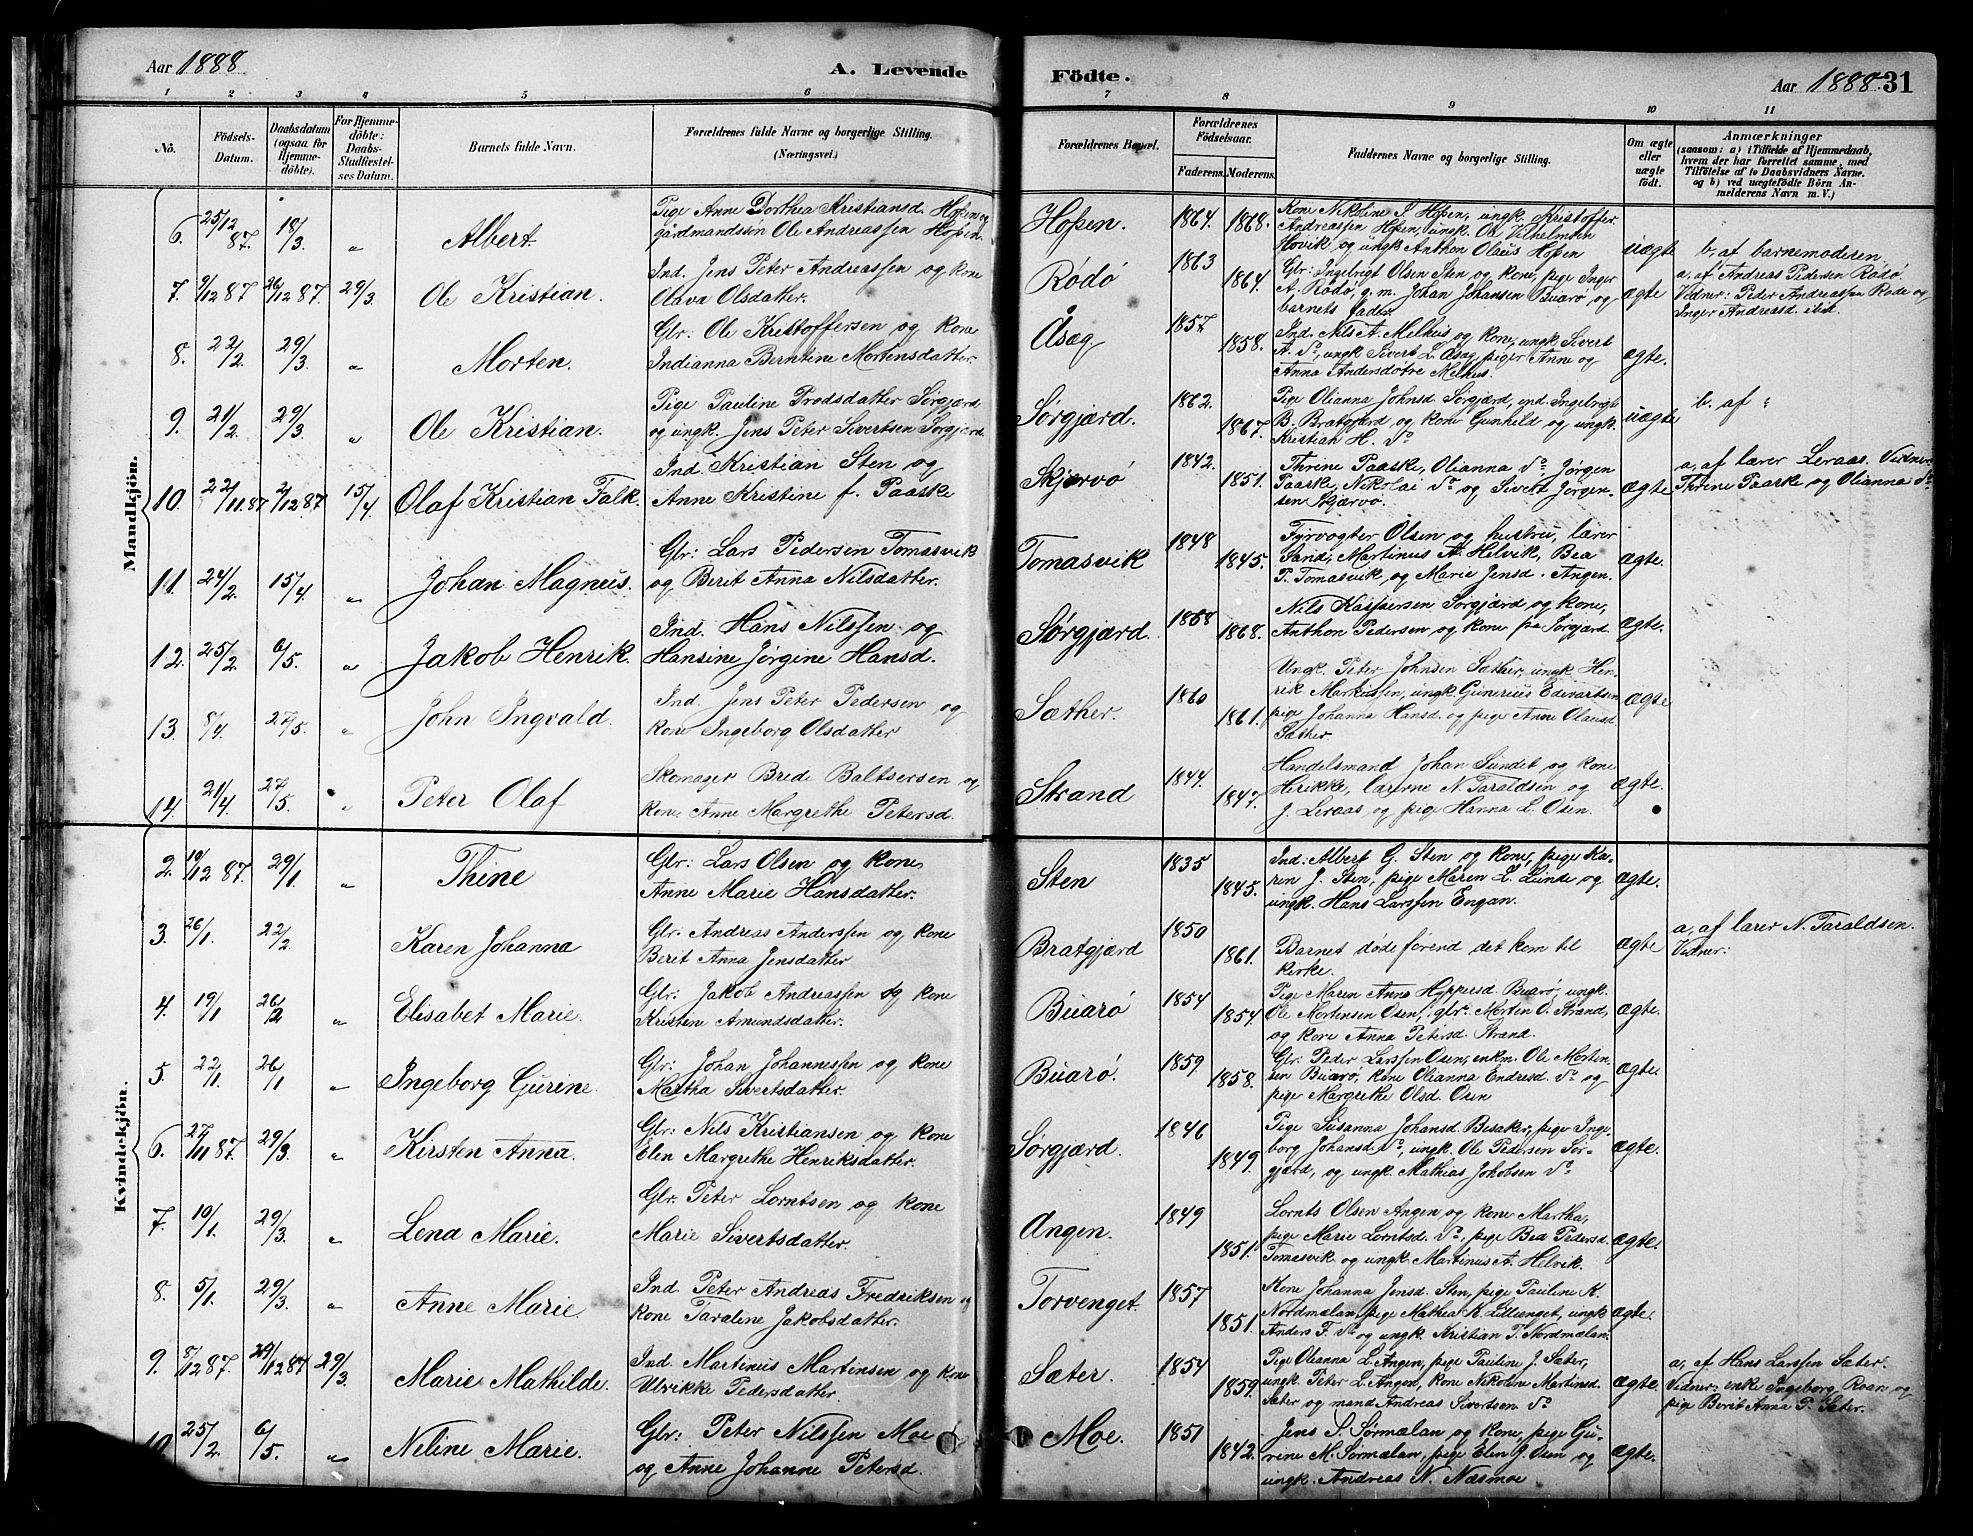 Aar 1888
A. Levende
Födte.
Aar 1888. 31
1 2 3 4 5 6 7 8 9 10 11
No.
Födsels-Datum.
Daabsdatum (ogsaa for Hjemmedöbte).
For Hjemmedöbte: Daabs-Stadfæstelses Datum.
Barnets fulde Navn.
Forældrenes fulde Navne og borgerlige Stilling. (Næringsvei.)
Forældrenes Bopæl.
Forældrenes Födselsaar.
Faderens. Moderens.
Faddernes Navne og borgerlige Stilling.
Om ægte eller uægte födt.
Anmærkninger
(saasom: a) i Tilfælde af Hjemmedaab, hvem der har forrettet samme, med Tilföielse af to Daabsvidners Navne. og b) ved uægtefödte Börn Anmelderens Navn m. V.)
Mandkjön.
6. 25/12 87. 18/3. " Albert. Pige Anne Dorthea Kristiansd. Hopen og
gårdmandssön Ole Andreassen Hopen. Hopen. 1864. 1868. Kone Nikoline S. Hopen, ungk. Kristoffer
Andreassen Hopen, ungk. Ole Vilhelmsen
Hovik og ungk Anthon Olaus Hopen uægte b, af barnemoderen.
7. 9/12 87 26/12 87. 29/3. Ole Kristian. Ind. Jens Peter Andreassen og kone
Olava Olsdatter. Rödö 1863 1864. Gbr: Ingebrigt Olsen Sten og kone, pige Inger
A. Rödö, g. m. Johan Johansen Buarö og
barnets fader ægte a, af Andreas Pedersen Rödö.
Vidner: Peder Andreassen Rödö og
Inger Andreasd. ibid.
8. 22/2 29/3. " Morten. Gbr. Ole Kristoffersen og kone
Indianna Berntine Mortensdatter. Åsæg 1857 1858. Ind. Nils A. Melhus og kone, ungk Sivert
A. Do, ungk Sivert L. Åsæg, piger Anne og
Anna Andersdøtre Melhus. ægte.
9. 21/2. 29/3. " Ole Kristian. Pige Pauline Trodsdatter Sörgjærd
og ungk. Jens Peter Sivertsen Sörgjærd. Sörgjærd. 1862. 1867. Pige Olianna Johnsd Sörgjærd, ind. Ingebrigt
B. Bratgjærd og kone Gunhild og ungk.
Kristian H. Do uægte b. af "
10. 22/11.87 2/12 87 15/4. Olaf Kristian Falk. Ind. Kristian Sten og
Anne Kristine f. Paaske Skjervö 1842. 1851. Thrine Paaske, Olianna Do, Jörgen
Paaske, Nikolai Do og Sivert Jörgen-
sen Skjærvö. ægte a, af lærer Leraas. Vidner:
Thrine Paaske og Olianna Do
11. 24/2. 15/4. " Johan Magnus. Gbr: Lars Pedersen Tomasvik
og Berit Anna Nilsdatter. Tomasvik 1848 1845. Fyrvogter Olsen og hustru, lærer
Sand, Martinus A. Helvik, Bea
P. Tomasvik, og Marie Jensd. Angen. ægte.
12. 25/2. 6/5. " Jakob Henrik. Ind. Hans Nilssen og
Hansine Jörgine Hansd. Sörgjærd. 1858 1868. Nils Kaspersen Sörgjærd og kone,
Anthon Pedersen og kone paa Sörgjærd. ægte.
13. 8/4. 27/5. " John Ingvald. Ind. Jens Peter Pedersen og
kone Ingeborg Olsdatter Sæther. 1860 1861. Ungk. Peter Johnsen Sæther, ungk Hen-
rik Markussen, ungk. Gunerius Edevartsen
pige Johanna Hansd. og pige Anne Olausd
Sæther. ægte
14. 21/4. 27/5. " Peter Olaf Skomager Brede Baltsersen og
kone Anne Margrethe Petersd. Strand 1844. 1847. Handelsmand Johan Sundet og kone
Hirikke, lærerne N. Taraldsen og
J. Leraas og pige Hanna L. Osen. ægte.
Kvindekjön.
2. 10/12 87. 29/1. " Thine Gbr: Lars Olsen og kone
Anne Marie Hansdatter. Sten 1835 1845. Ind: Albert G. Sten og kone, pige Ka-
ren J. Sten, pige Maren L. Lunde og
ungk. Hans Larssen Engan. ægte.
3. 26/1. 22/2. Karen Johanna Gbr. Andreas Anderssen og kone
Berit Anna Jensdatter Bratgjærd 1850 1861. Barnet döde förend det kom til
kirke. ægte a, af lærer N. Taraldsen.
Vidner:
4. 19/1 26/2 " Elisabet Marie. Gbr: Jakob Andreassen og kone
Kristine Amundsdatter. Buarö 1854 1854. Pige Maren Anna Hoppersd Buarö, ungk.
Ole Mortensen Osen, gbr. Morten O. Strand,
og kone Anna Petersd. Strand. ægte.
5. 22/1. 26/1 " Ingeborg Gurine. Gbr: Johan Johannessen og kone
Martha Sivertsdatter. Buarö. 1859 1858. Gbr. Peder Larssen Osen, enkm. Ole Morten-
sen Buarö, kone Olianna Endresd. Do og
pige Margrethe Olsd. Osen ægte.
6. 27/11 87. 29/3. " Kirsten Anna. Gbr: Nils Kristiansen og kone
Elen Margrethe Henriksdatter. Sörgjærd. 1846 1849. Pige Susanna Johansd. Besaker, pige Inge-
borg Johansd. Do, ungk. Ole Pedersen Sör-
gjærd, og ungk Mathias Jakobsen Do ægte.
7. 10/1. 29/3. " Lena Marie. Gbr. Peter Lorntsen og kone
Marie Sivertsdatter. Angen. 1849 1851. Lornts Olsen Angen og kone Martha,
pige Marie Lorntsd. Do, pige Bea Pedersd.
Tomasvik og ungk Martinus A. Helvik. ægte.
8. 5/1. 29/3. " Anne Marie Ind Peter Andreas Fredriksen og
kone Taraline Jakobsdatter. Torvenget. 1857 1851. Kone Johanna Jensd. Sten, pige Pauline K.
Nordmælan, pige Mathea K. Lillenget, ungk
Anders F. Do og ungk. Kristian T. Nordmælan. ægte.
9. 8/12 87. 29/12 87 29/3. Marie Mathilde. Ind. Martinus Martinsen og kone
Ulrikke Pedersdatter. Sæter. 1854 1859. Pige Olianna L. Angen, pige Pauline J. Sæter,
ungk Peter L. Angen, kone Nikoline Martinsd.
Sæter og mand Andreas Sivertsen Do ægte. a, af Hans Larssen Sæter.
Vidner: enke Ingeborg Roan og
pige Berit Anna P. Sæter.
10 25/2. 6/5. " Neline Marie. Gbr: Peter Nilssen Moe
og Anne Johanne Petersd. Moe. 1851 1842. Jens S. Sörmælan og kone, pige Gu-
rine M. Sörmælan, pige Elen J. Osen og
ungk. Andreas N. Næsmoe ægte.